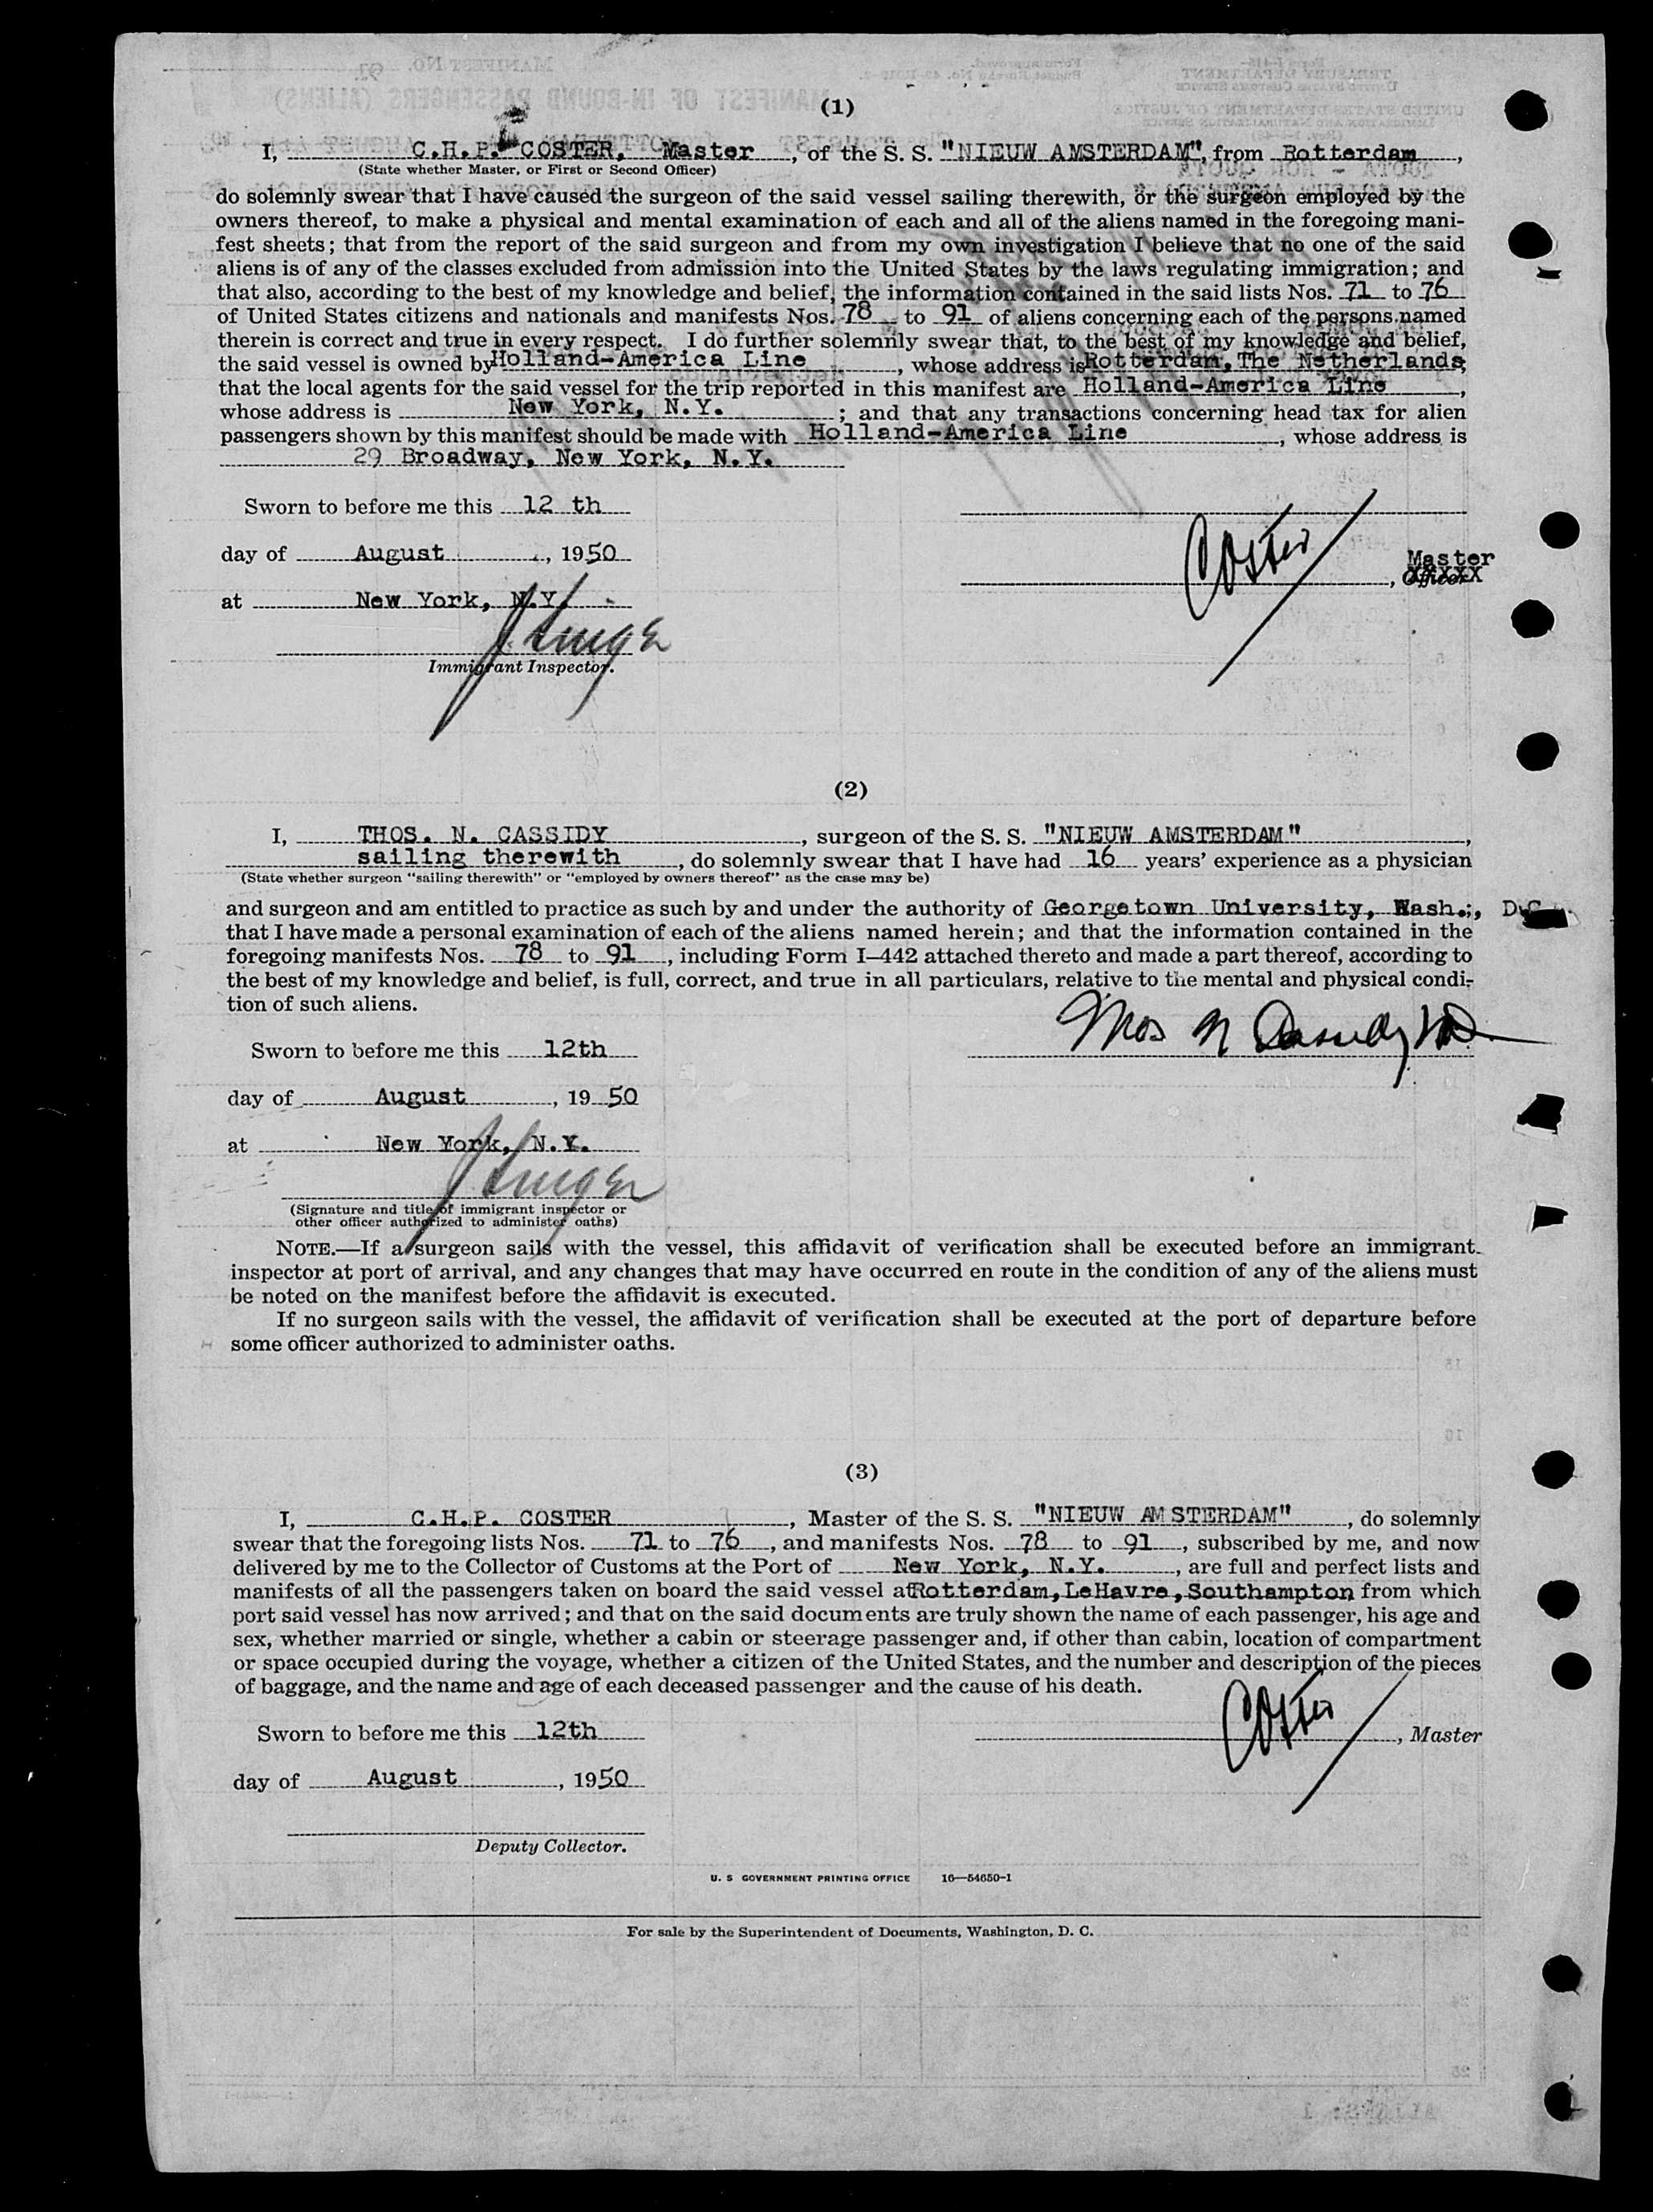 (1)
I, C.H.P. COSTER, Master, of the S. S. "NIEUW AMSTERDAM", from Rotterdam,
(State whether Master, or First or Second Officer)
do solemnly swear that I have caused the surgeon of the said vessel sailing therewith, or the surgeon employed by the
owners thereof, to make a physical and mental examination of each and all of the aliens named in the foregoing mani-
fest sheets; that from the report of the said surgeon and from my own investigation I believe that no one of the said
aliens is of any of the classes excluded from admission into the United States by the laws regulating immigration; and
that also, according to the best of my knowledge and belief, the information contained in the said lists Nos. 71 to 76
of United States citizens and nationals and manifests Nos. 78 to 91 of aliens concerning each of the persons named
therein is correct and true in every respect. I do further solemnly swear that, to the best of my knowledge and belief,
the said vessel is owned by Holland-America Line, whose address is Rotterdam, The Netherlands;
that the local agents for the said vessel for the trip reported in this manifest are Holland-America Line,
whose address is New York, N.Y.; and that any transactions concerning head tax for alien
passengers shown by this manifest should be made with Holland-America Line, whose address is
29 Broadway, New York, N.Y.
Sworn to before me this 12 th
day of August, 1950
Coster
Master
, Officer
at New York, N.Y.
Immigrant Inspector.
(2)
I, THOS. N. CASSIDY, surgeon of the S. S. "NIEUW AMSTERDAM",
sailing therewith, do solemnly swear that I have had 16 years' experience as a physician
(State whether surgeon "sailing therewith" or "employed by owners thereof" as the case may be)
and surgeon and am entitled to practice as such by and under the authority of Georgetown University, Wash., D.C.
that I have made a personal examination of each of the aliens named herein; and that the information contained in the
foregoing manifests Nos. 78 to 91, including Form I-442 attached thereto and made a part thereof, according to
the best of my knowledge and belief, is full, correct, and true in all particulars, relative to the mental and physical condi-
tion of such aliens.
Thos N Cassidy MD
Sworn to before me this 12th
day of August, 1950
at New York, N.Y.
(Signature and title of immigrant inspector or
other officer authorized to administer oaths)
NOTE.—If a surgeon sails with the vessel, this affidavit of verification shall be executed before an immigrant
inspector at port of arrival, and any changes that may have occurred en route in the condition of any of the aliens must
be noted on the manifest before the affidavit is executed.
If no surgeon sails with the vessel, the affidavit of verification shall be executed at the port of departure before
some officer authorized to administer oaths.
(3)
I, C.H.P. COSTER, Master of the S. S. "NIEUW AMSTERDAM", do solemnly
swear that the foregoing lists Nos. 71 to 76, and manifests Nos. 78 to 91, subscribed by me, and now
delivered by me to the Collector of Customs at the Port of New York, N.Y., are full and perfect lists and
manifests of all the passengers taken on board the said vessel at Rotterdam, LeHavre, Southampton from which
port said vessel has now arrived; and that on the said documents are truly shown the name of each passenger, his age and
sex, whether married or single, whether a cabin or steerage passenger and, if other than cabin, location of compartment
or space occupied during the voyage, whether a citizen of the United States, and the number and description of the pieces
of baggage, and the name and age of each deceased passenger and the cause of his death.
Sworn to before me this 12th
Coster, Master
day of August, 1950
Deputy Collector.
U. S GOVERNMENT PRINTING OFFICE 16—54650-1
For sale by the Superintendent of Documents, Washington, D. C.